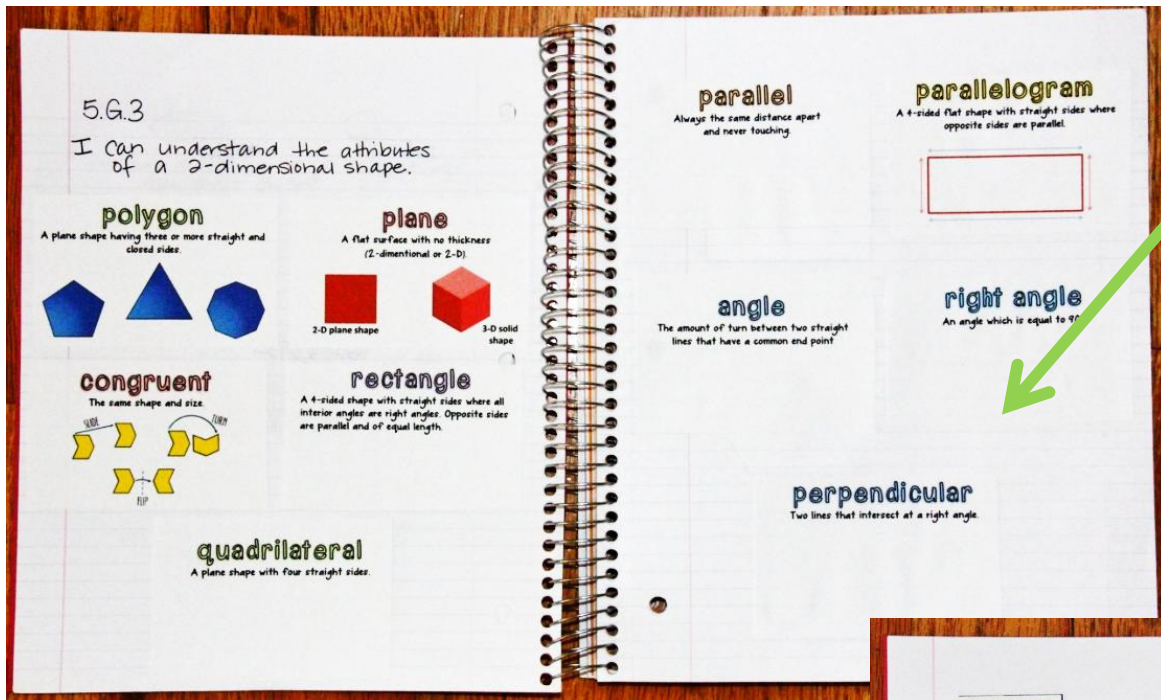 5.G.3
I can understand the attributes
of a 2-dimensional shape.
polygon
A plane shape having three or more straight and
closed sides.
plane
A flat surface with no thickness
(2-dimentional or 2-D).
2-D plane shape
3-D solid
shape
congruent
The same shape and size.
SLIDE
TURN
FLIP
rectangle
A 4-sided shape with straight sides where all
interior angles are right angles. Opposite sides
are parallel and of equal length.
quadrilateral
A plane shape with four straight sides.
parallel
Always the same distance apart
and never touching.
parallelogram
A 4-sided flat shape with straight sides where
opposite sides are parallel.
angle
The amount of turn between two straight
lines that have a common end point
right angle
An angle which is equal to
perpendicular
Two lines that intersect at a right angle.